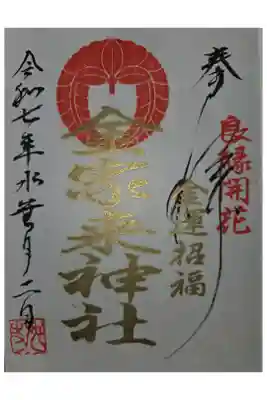 奉拝
良縁開花
金運招福
神社
令和七年水無月二日